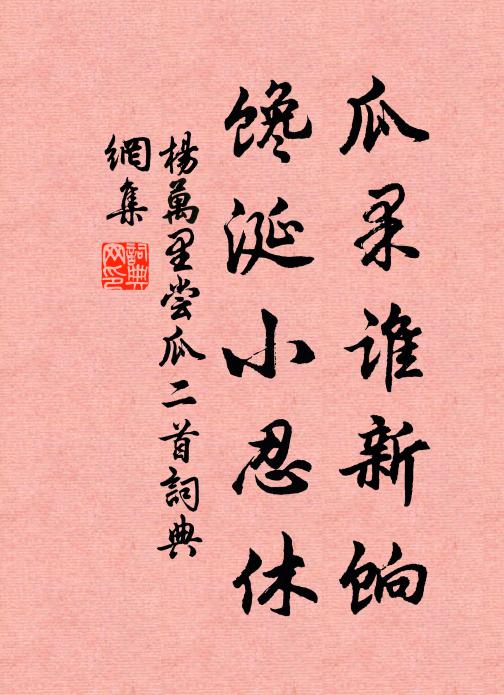 瓜果谁新餉
馋涎小忍休
楊萬里尝瓜二首詞典
網集
詞典
网印